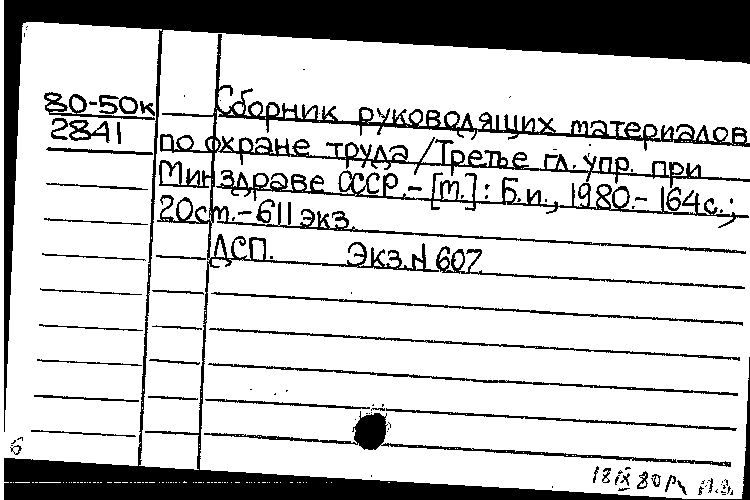 80-50к
2841
Сборник руководящих материалов
по охране труда /Третье гл. упр. при
Минздраве СССР.- [М.]: Б.и., 1980.- 164с.;
20см.- 611 экз.
ДСП. Экз.N 607.
б
18 IX 80г